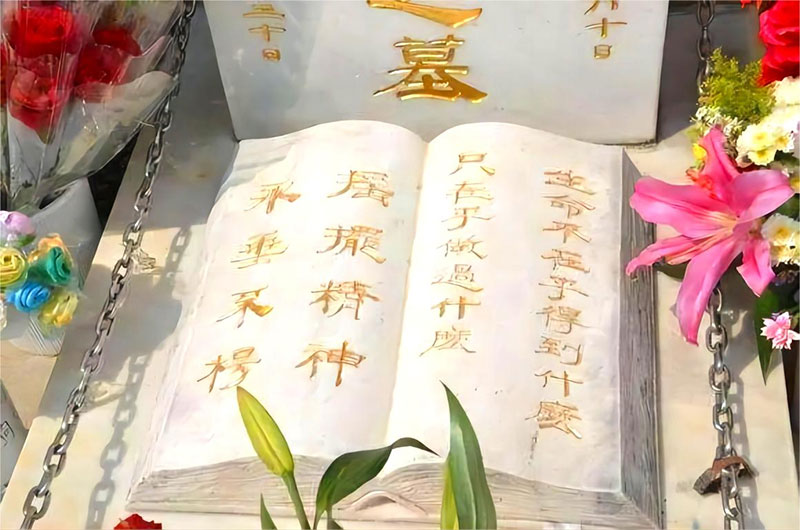 月十日
之墓
三十日
生命不在乎得到什麼
只在乎做過什麼
搖擺精神
永垂不朽